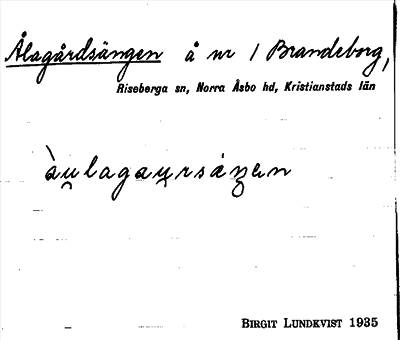 Ålagårdsängen å nr 1 Brandeborg,
Riseberga sn, Norra Åsbo hd, Kristianstads län
àu̯lagau̯rsáŋen
BIRGIT LUNDKVIST 1935